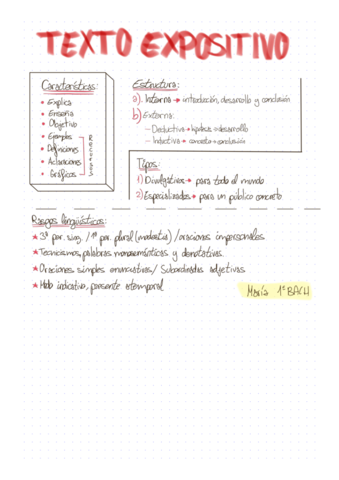 TEXTO EXPOSITIVO
Características:
• Explica
• Enseña
• Objetivo
• Ejemplos
• Definiciones
• Aclaraciones
• Gráficos
RECURSOS
Estructura:
a) Interna → introducción, desarrollo y conclusión
b) Externa:
— Deductiva → hipótesis → desarrollo
— Inductiva → concreto → conclusión
Tipos:
1) Divulgativos → para todo el mundo
2) Especializados → para un público concreto
Rasgos lingüísticos:
★ 3ª per. sing. / 1ª per. plural (modestia) / oraciones impersonales.
★ Tecnicismos, palabras monosemánticas y denotativas.
★ Oraciones simples enunciativas / Subordinadas adjetivas.
★ Modo indicativo, presente atemporal
María 1º BACH